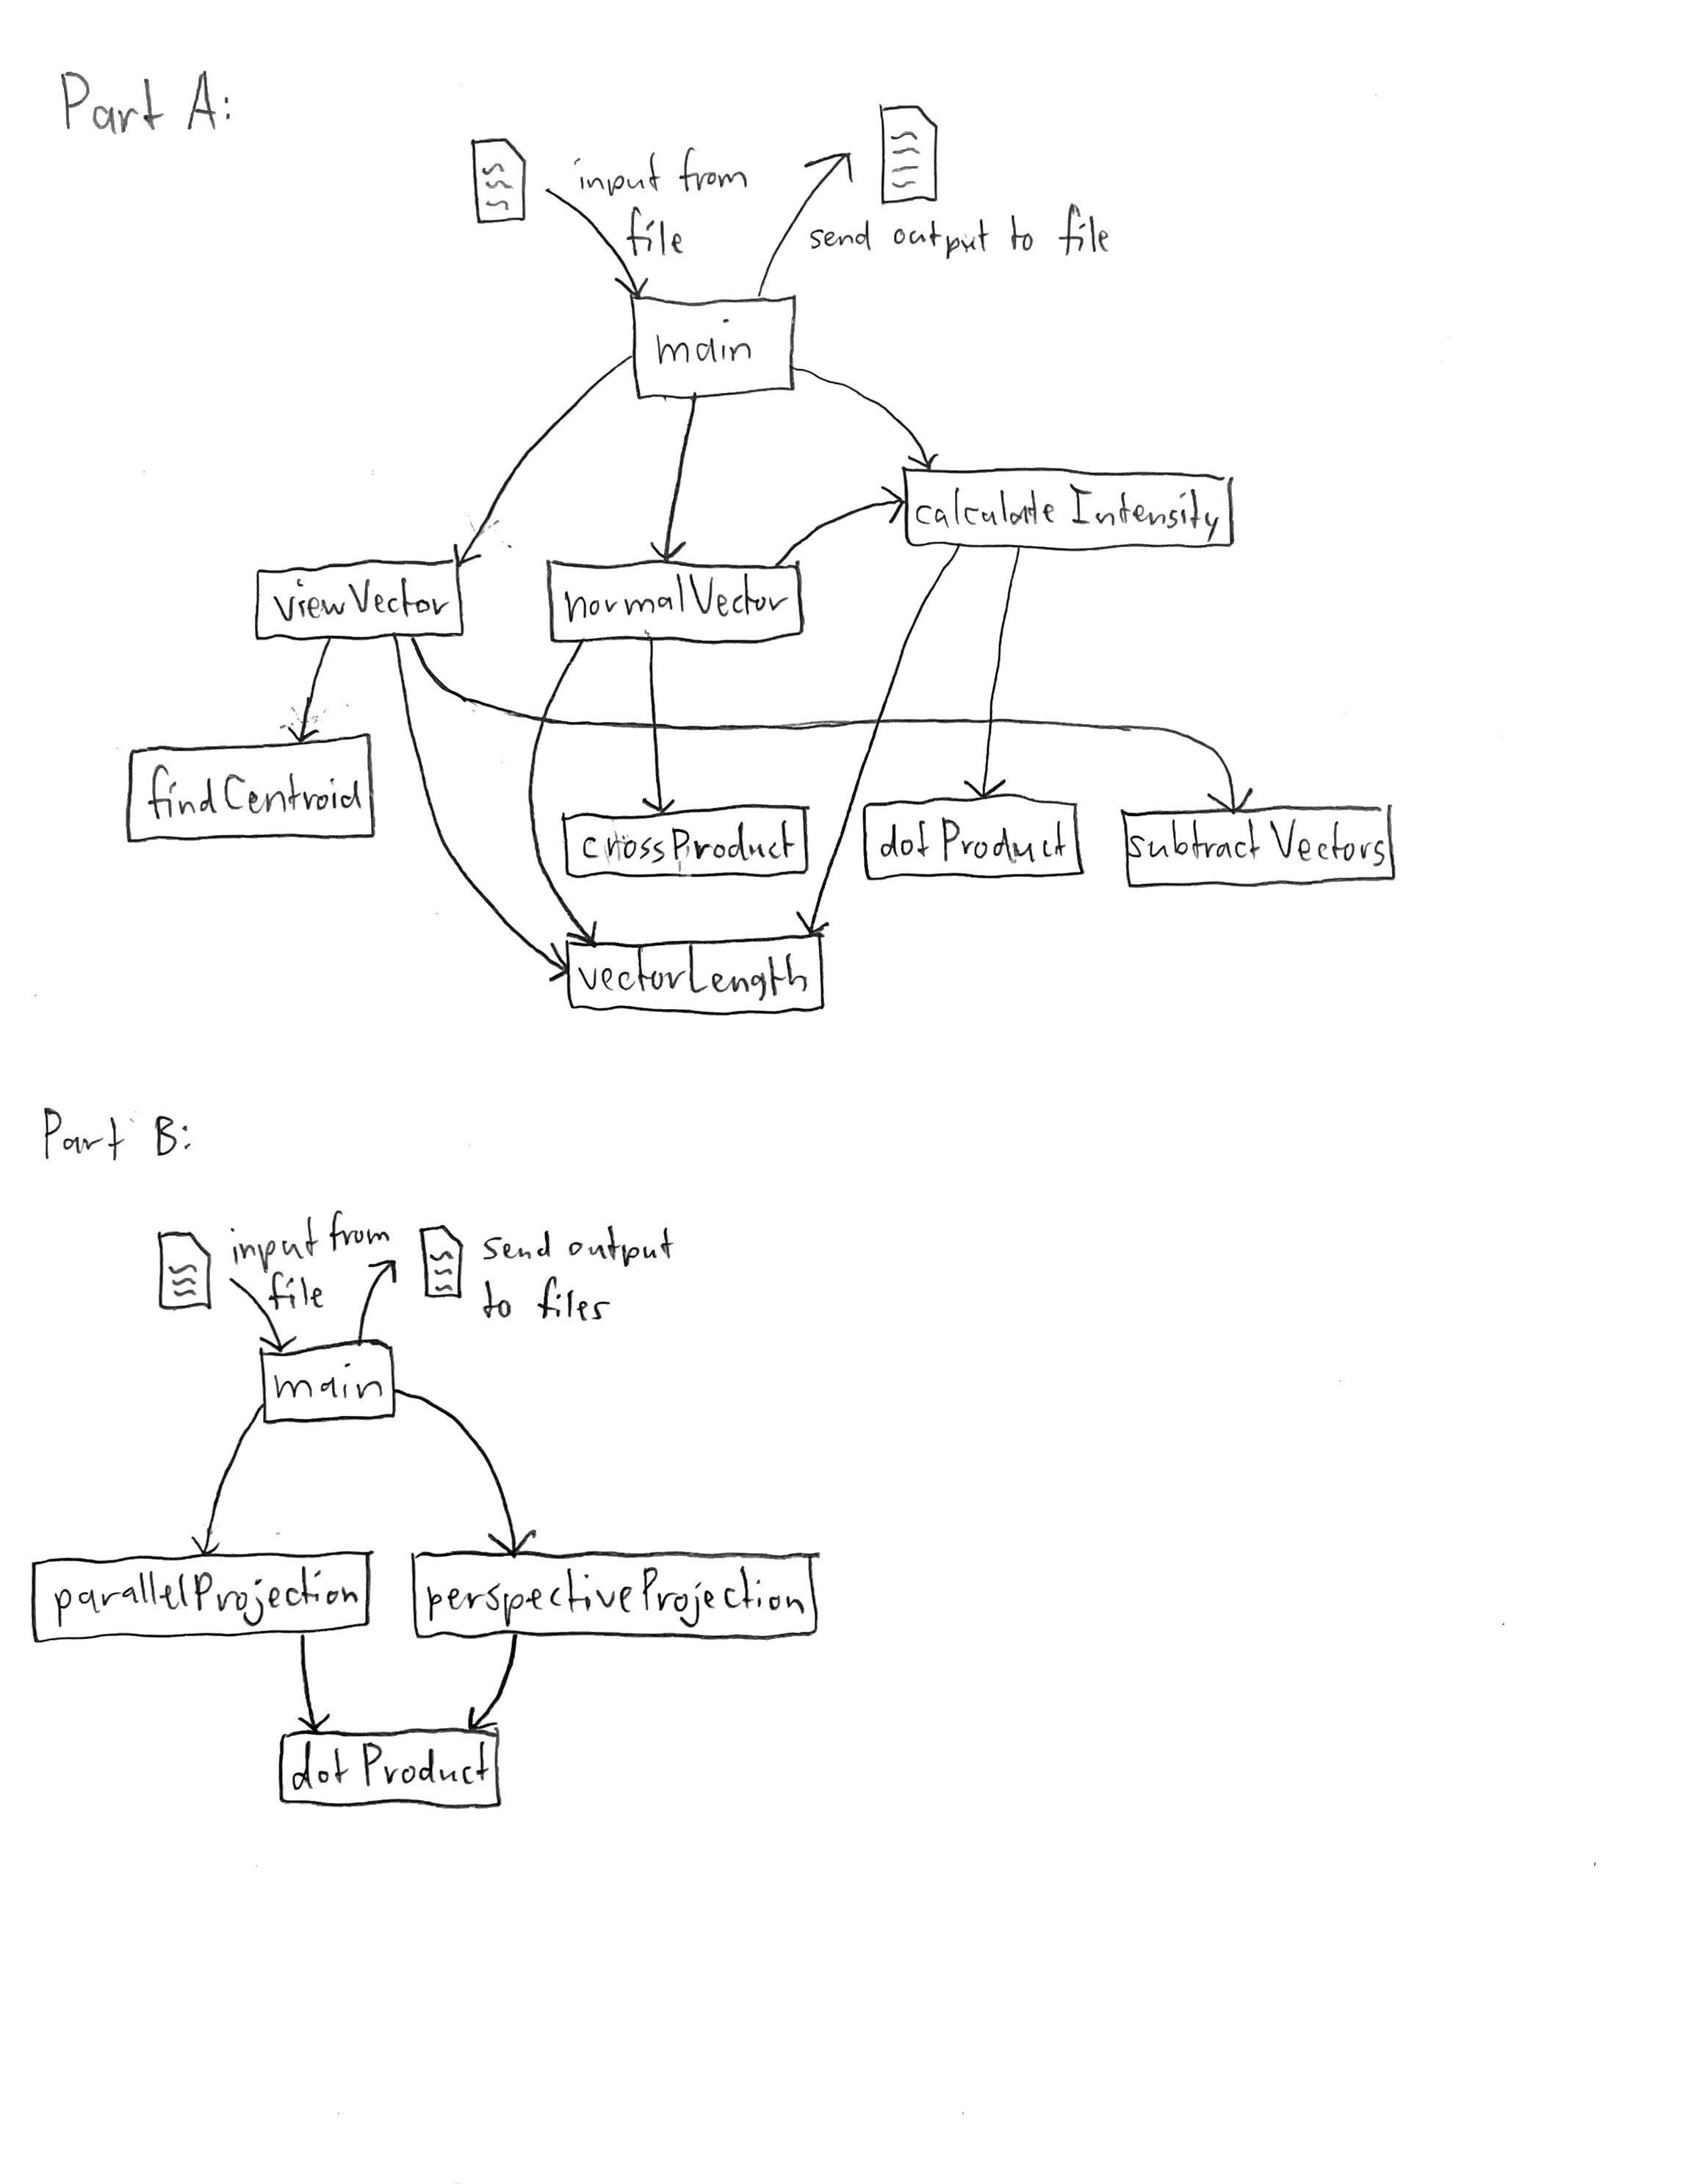 Part A:
input from
file
send output to file
main
calculate Intensity
viewVector
normalVector
findCentroid
crossProduct
dotProduct
subtractVectors
vectorLength
Part B:
input from
file
send output
to files
main
parallelProjection
perspectiveProjection
dotProduct